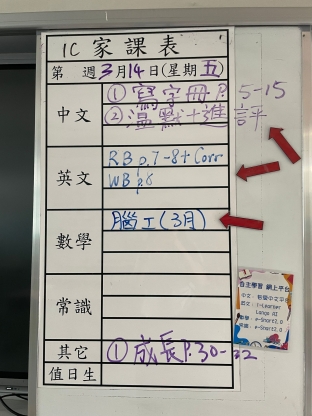 1C 家課表
第 週 3月14日(星期五)
中文
① 寫字冊 P. 5-15
② 溫默+進評
英文
RB p.7-8+Corr
WB p.6
數學
腦工(3月)
常識
其它
① 成長P.30-32
值日生
自主學習 網上平台
i-Learner
e-Smart2.0
e-Smart2.0